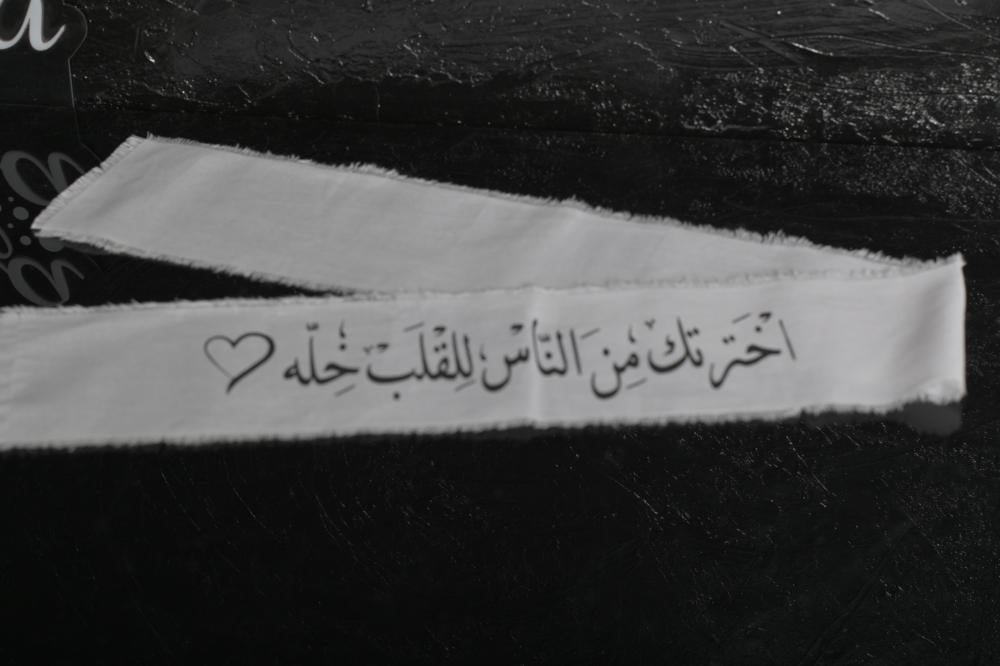 اخْترتك مِن النَّاسْ لِلقَلبْ خِلّه ♡